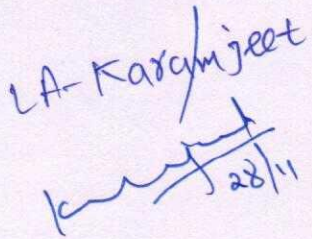 LA-Karamjeet
28/11